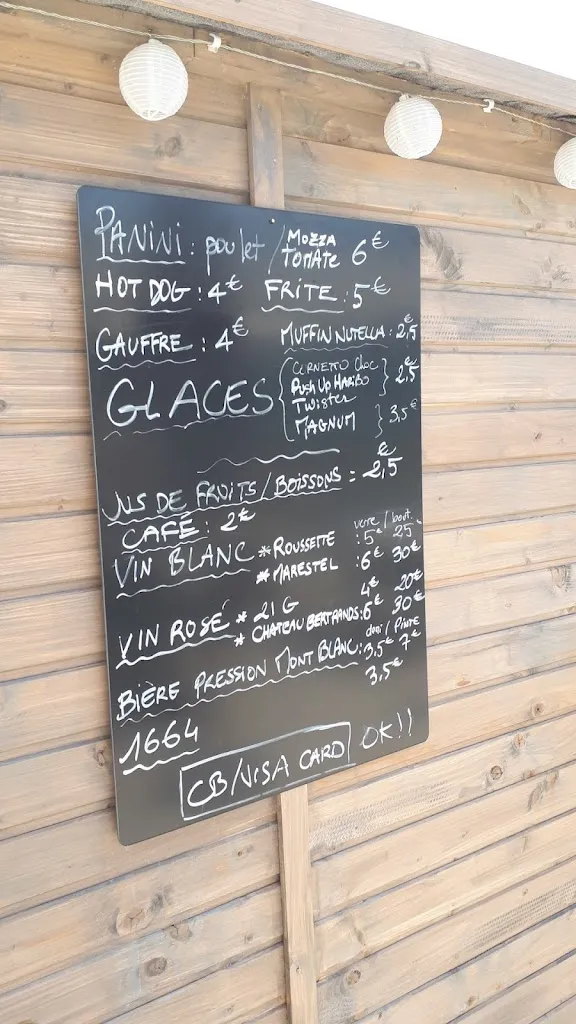 PANINI : poulet / MOZZA TOMATE 6€
HOT DOG : 4€ FRITE : 5€
GAUFFRE : 4€ MUFFIN NUTELLA : 2,5€
GLACES { CORNETTO Choc
PUSH UP HARIBO } 2,5€
TWISTER
MAGNUM } 3,5€
JUS DE FRUITS / BOISSONS = 2,5€
CAFÉ : 2€ verre / bout.
VIN BLANC * ROUSSETTE : 5€ 25
* MARESTEL : 6€ 30€
VIN ROSÉ * 21 G 4€ 20€
* CHATEAU BERTRANDS : 6€ 30€
demi / Pinte
BIÈRE PRESSION MONT BLANC : 3,5€ 7€
1664 3,5€
CB/VISA CARD OK !!